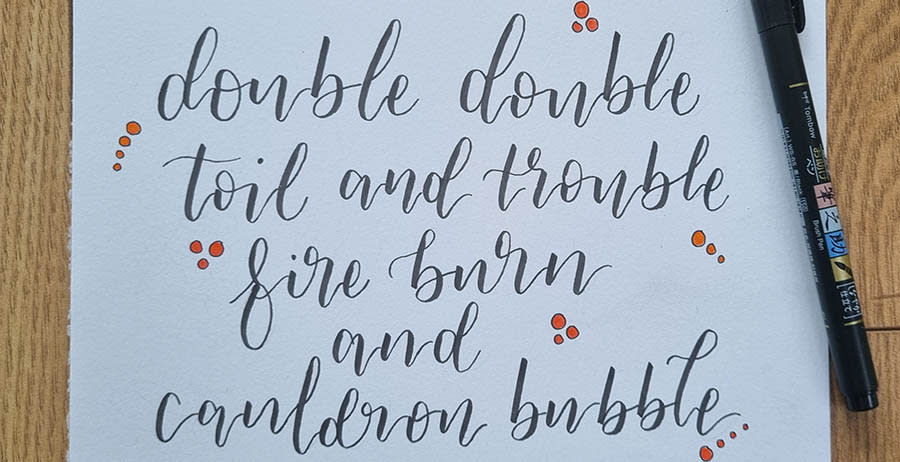 double double
toil and trouble
fire burn
and
cauldron bubble
Tombow
Brush Pen